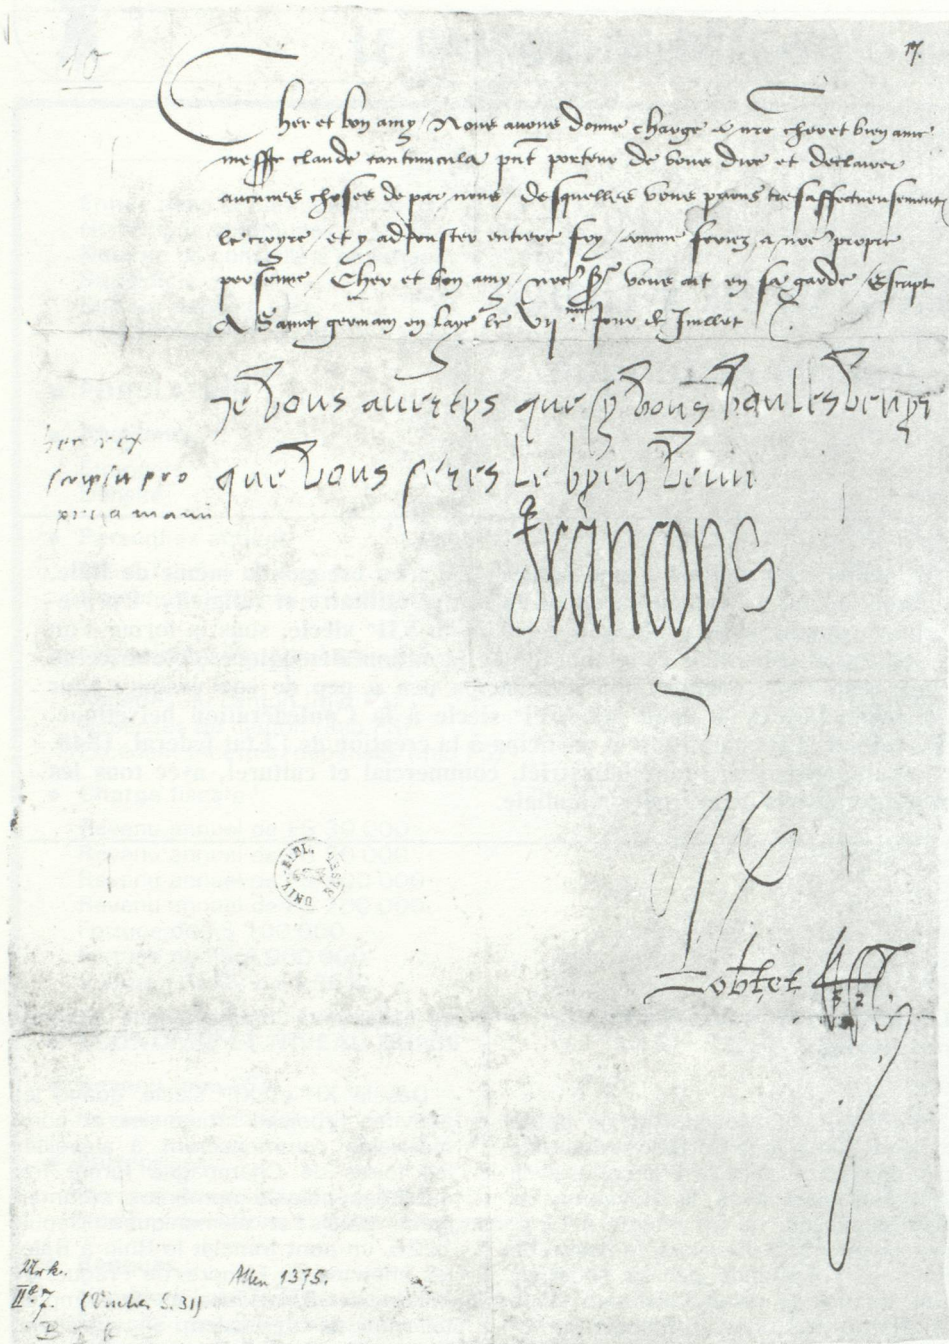 10
17.
Cher et bon amy / Nous avons donne charge a nre cher et bien ame
messe claude cantiuncula pnt porteur de vous dire et declairer
aucunes choses de par nous / desquelles vous prions tresaffectueusement
le croyre / et y adiouster entiere foy / comme feriez a nre propre
personne / Cher et bon amy / nre sr vous ait en sa garde / Escript
A Sainct germain en laye le vii me jour de Juillet
Je vous avertys que sy vous voulles venyr
que vous seres le byen venu
hec rex
scripsit pro
pria manu
francoys
Robertet
UNIV. BIBL.
Urk.
IIa. 7. (Vischer S. 31)
Allen 1375.